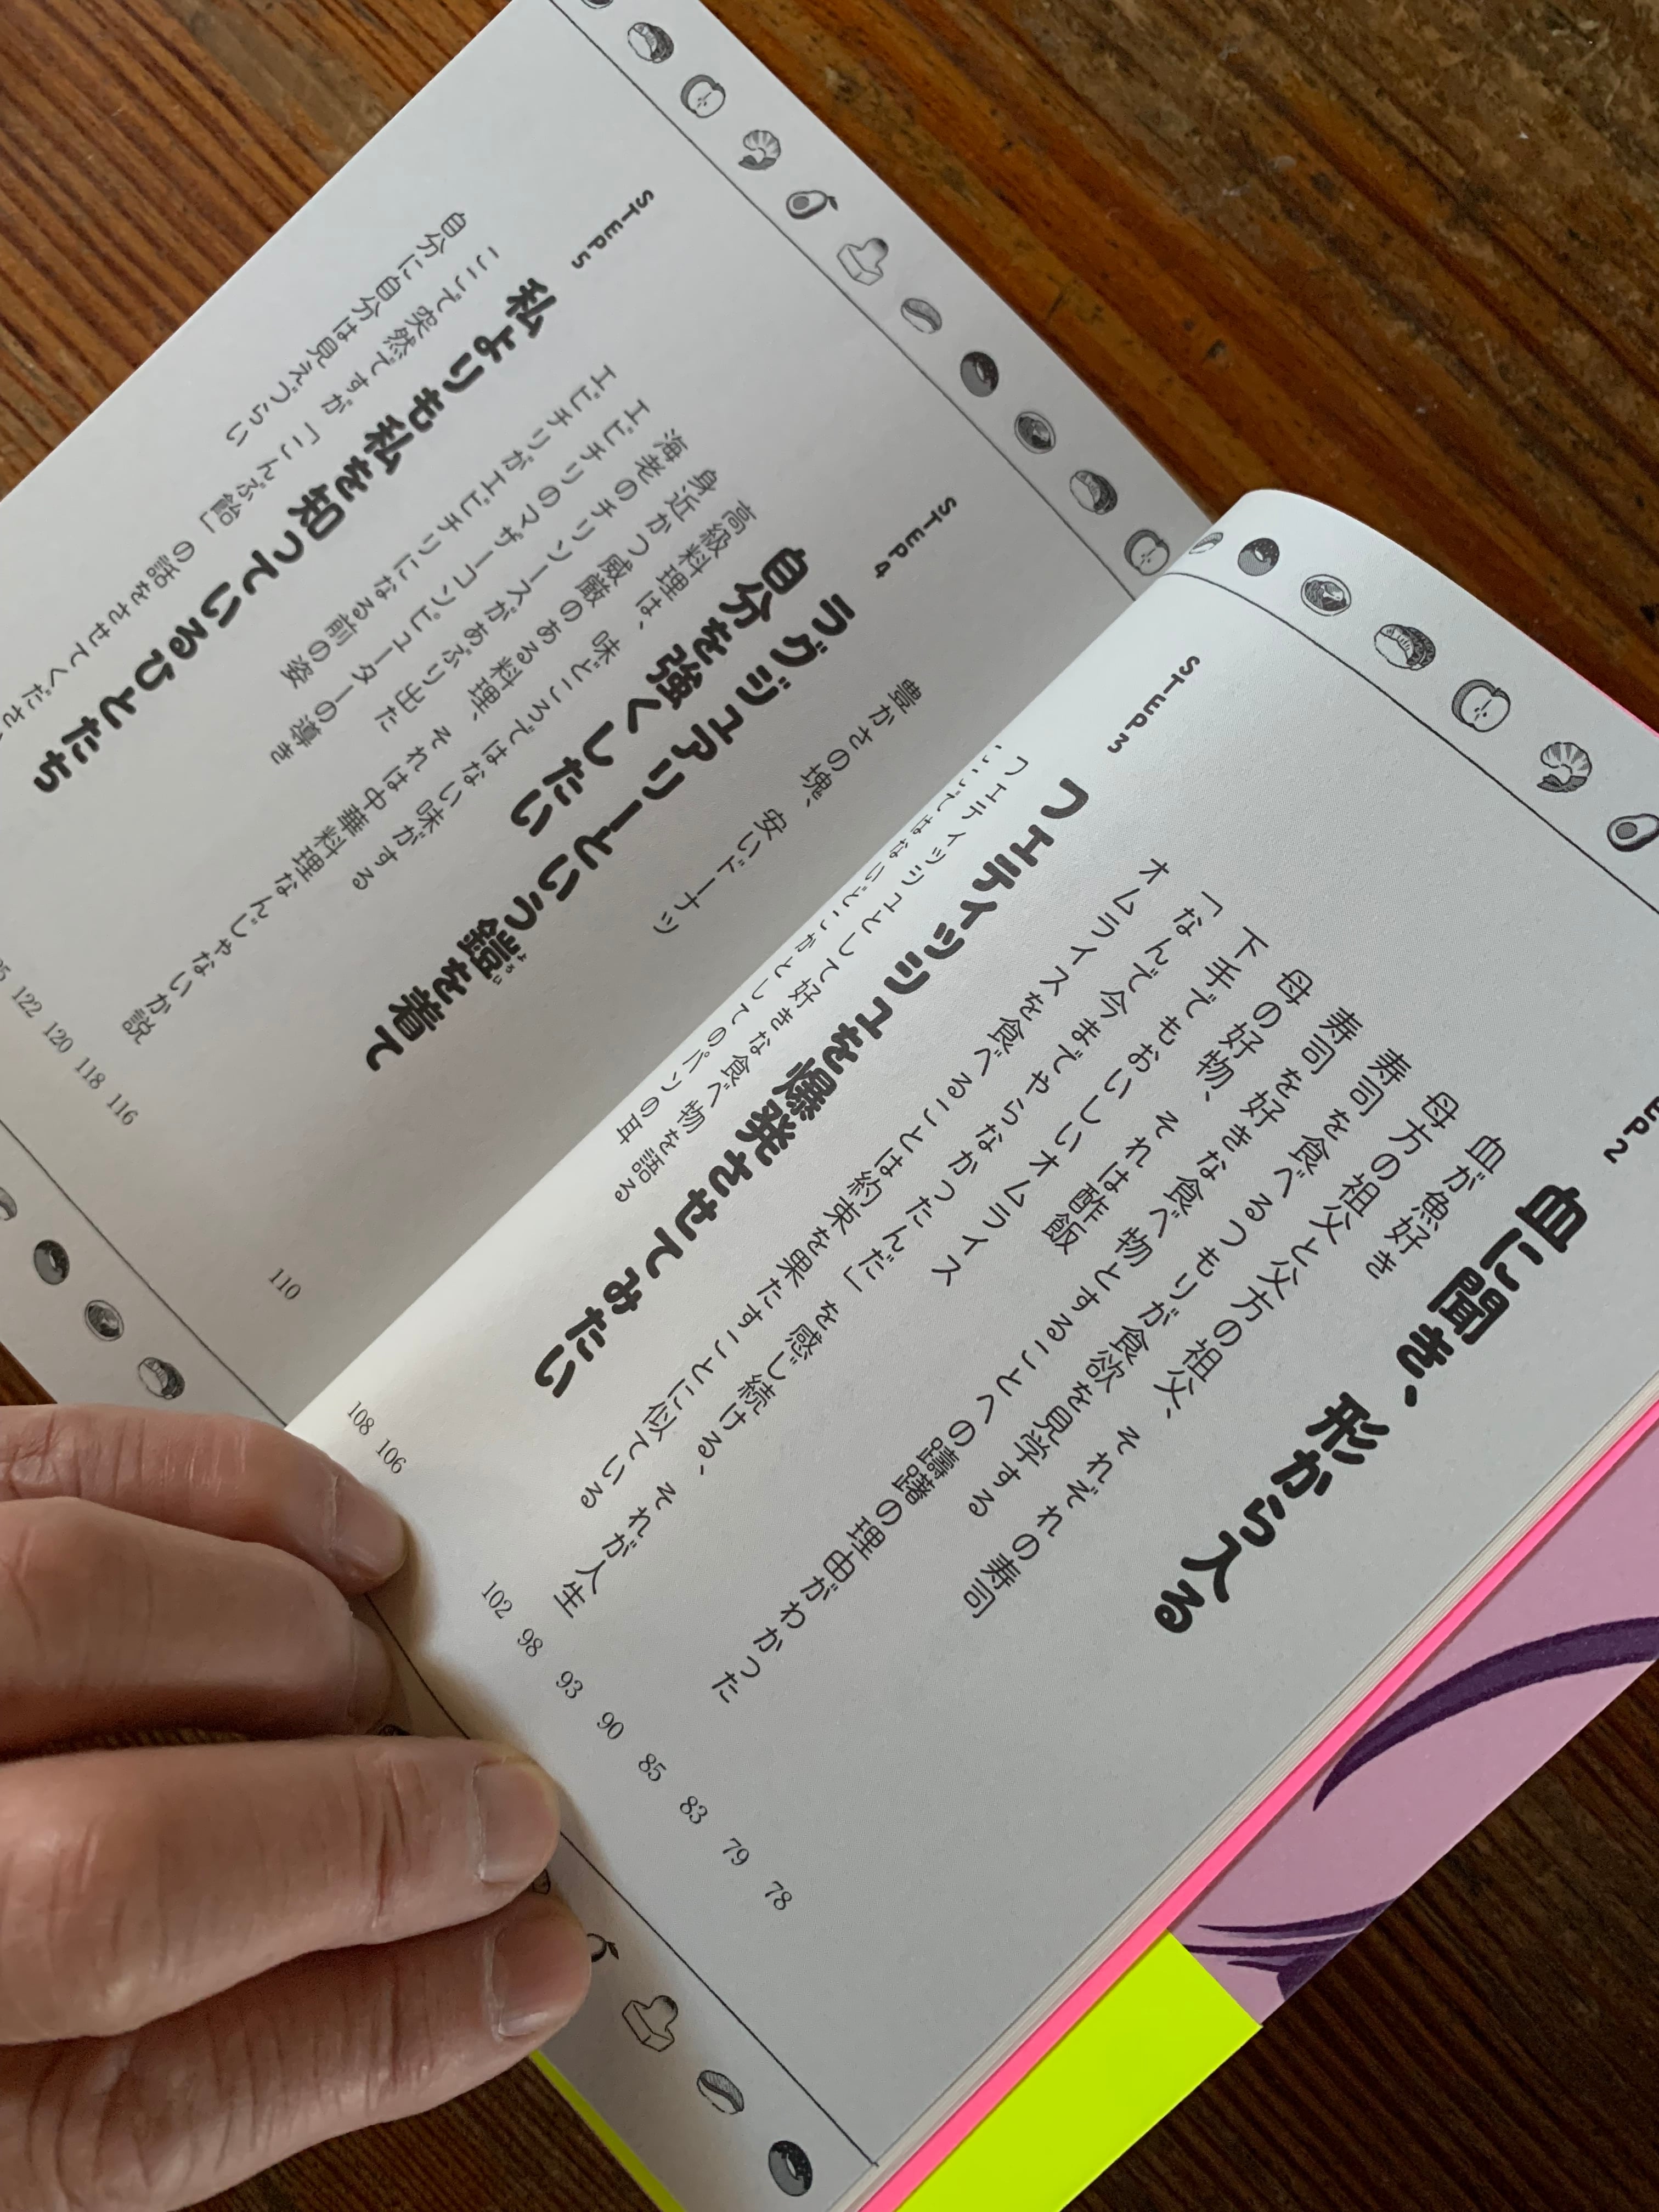 EP2
血に聞き、形から入る
血が魚好き 78
母方の祖父と父方の祖父、それぞれの寿司 79
寿司を食べるつもりが食欲を見学する 83
寿司を好きな食べ物とすることへの躊躇の理由がわかった 85
母の好物、それは酢飯 90
下手でもおいしいオムライス 93
「なんで今までやらなかったんだ」を感じ続ける、それが人生 98
オムライスを食べることは約束を果たすことに似ている 102
STEP3
フェティッシュを爆発させてみたい
フェティッシュとして好きな食べ物を語る 106
ここではないどこかとしてのパンの耳 108
豊かさの塊、安いドーナツ 110
STEP4
ラグジュアリーという鎧を着て
よろい
自分を強くしたい
高級料理は、味どころではない味がする 116
身近かつ威厳のある料理、それは中華料理なんじゃないか説 118
海老のチリソースがあぶり出した 120
エビチリのマザーコンピューターの導き 122
エビチリがエビチリになる前の姿
STEP5
私よりも私を知っているひとたち
ここで突然ですが「こんぶ飴」の話をさせてくださ
自分に自分は見えづらい